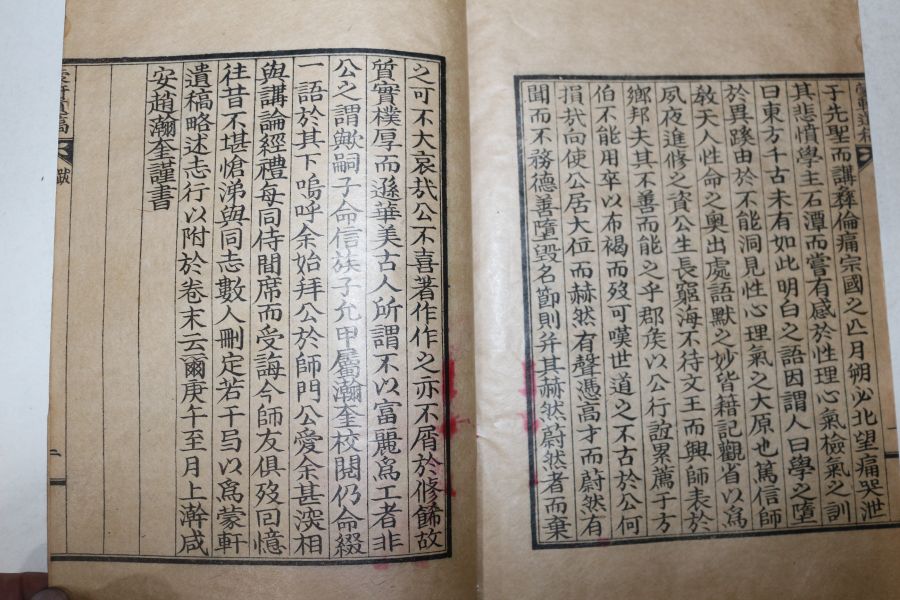 于先聖而講彝倫痛宗國之亡每月朔必北望痛哭泄
其悲憤學主石潭而嘗有感於性理心氣檢氣之訓
曰東方千古未有如此明白之語因謂人曰學之墮
於異蹊由於不能洞見性心理氣之大原也篤信師
敎天人性命之奧出處語默之妙皆籍記觀省以爲
夙夜進修之資公生長窮海不待文王而興師表於
鄉邦夫其不善而能之乎郡矦以公行誼累薦于方
伯不能用卒以布褐而歿可嘆世道之不古於公何
損㢤向使公居大位而赫然有聲憑高才而蔚然有
聞而不務德善墮毀名節則幷其赫然蔚然者而棄
之可不大哀㢤公不喜著作作之亦不屑於修餙故
質實樸厚而遜華美古人所謂不以富麗爲工者非
公之謂歟嗣子命信族子允甲屬瀚奎校閱仍命綴
一語於其下嗚呼余始拜公於師門公愛余甚深相
與講論經禮每同侍間席而受誨今師友俱歿回憶
往昔不堪愴涕與同志數人刪定若干弓以爲蒙軒
遺稿略述志行以附於卷末云爾庚午至月上澣咸
安趙瀚奎謹書
蒙軒遺稿
跋
二